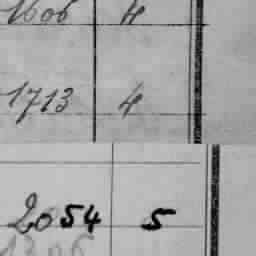 1606 4
1713 4
2054 5